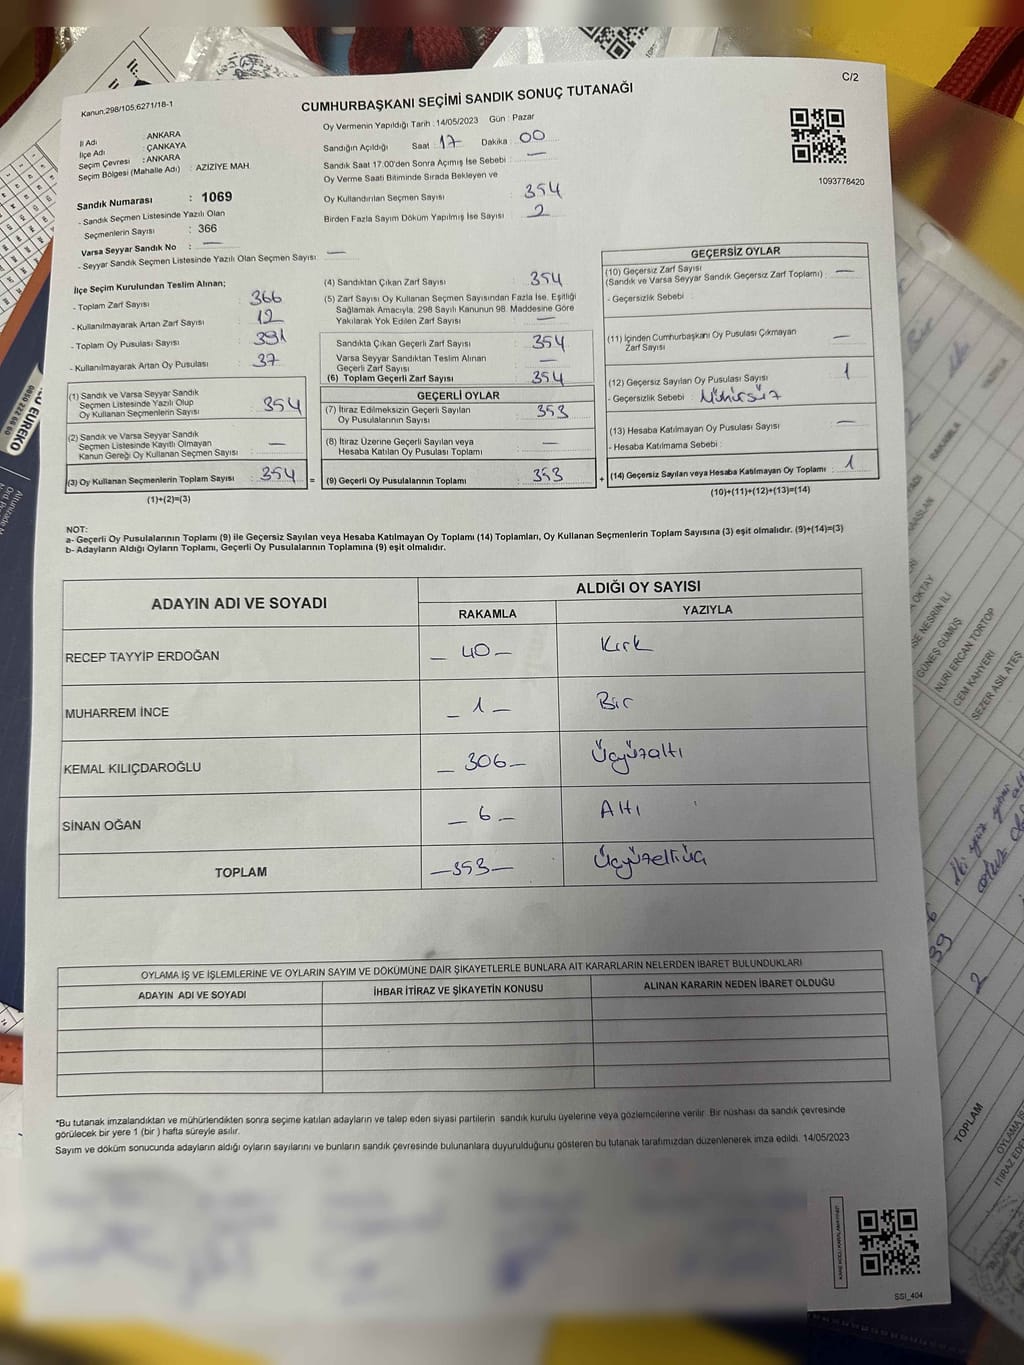 C/2
Kanun.298/105,6271/18-1
CUMHURBAŞKANI SEÇİMİ SANDIK SONUÇ TUTANAĞI
İl Adı : ANKARA
İlçe Adı : ÇANKAYA
Seçim Çevresi : ANKARA
Seçim Bölgesi (Mahalle Adı) : AZİZİYE MAH.
Sandık Numarası : 1069
- Sandık Seçmen Listesinde Yazılı Olan
Seçmenlerin Sayısı : 366
Varsa Seyyar Sandık No : —
- Seyyar Sandık Seçmen Listesinde Yazılı Olan Seçmen Sayısı: —
Oy Vermenin Yapıldığı Tarih : 14/05/2023 Gün : Pazar
Sandığın Açıldığı Saat : 17 Dakika : 00
Sandık Saat 17.00'den Sonra Açılmış İse Sebebi : —
Oy Verme Saati Bitiminde Sırada Bekleyen ve
Oy Kullandırılan Seçmen Sayısı : 354
Birden Fazla Sayım Döküm Yapılmış İse Sayısı : 2
1093778420
İlçe Seçim Kurulundan Teslim Alınan;
- Toplam Zarf Sayısı : 366
- Kullanılmayarak Artan Zarf Sayısı : 12
- Toplam Oy Pusulası Sayısı : 391
- Kullanılmayarak Artan Oy Pusulası : 37
(1) Sandık ve Varsa Seyyar Sandık
Seçmen Listesinde Yazılı Olup
Oy Kullanan Seçmenlerin Sayısı : 354
(2) Sandık ve Varsa Seyyar Sandık
Seçmen Listesinde Kayıtlı Olmayan
Kanun Gereği Oy Kullanan Seçmen Sayısı : —
(3) Oy Kullanan Seçmenlerin Toplam Sayısı : 354 =
(1)+(2)=(3)
(4) Sandıktan Çıkan Zarf Sayısı : 354
(5) Zarf Sayısı Oy Kullanan Seçmen Sayısından Fazla İse, Eşitliği
Sağlamak Amacıyla, 298 Sayılı Kanunun 98. Maddesine Göre
Yakılarak Yok Edilen Zarf Sayısı : —
Sandıkta Çıkan Geçerli Zarf Sayısı : 354
Varsa Seyyar Sandıktan Teslim Alınan
Geçerli Zarf Sayısı : —
(6) Toplam Geçerli Zarf Sayısı : 354
GEÇERLİ OYLAR
(7) İtiraz Edilmeksizin Geçerli Sayılan
Oy Pusulalarının Sayısı : 353
(8) İtiraz Üzerine Geçerli Sayılan veya
Hesaba Katılan Oy Pusulası Toplamı : —
(9) Geçerli Oy Pusulalarının Toplamı : 353 +
GEÇERSİZ OYLAR
(10) Geçersiz Zarf Sayısı
(Sandık ve Varsa Seyyar Sandık Geçersiz Zarf Toplamı) : —
- Geçersizlik Sebebi :
(11) İçinden Cumhurbaşkanı Oy Pusulası Çıkmayan
Zarf Sayısı : —
(12) Geçersiz Sayılan Oy Pusulası Sayısı : 1
- Geçersizlik Sebebi : Mühürsüz
(13) Hesaba Katılmayan Oy Pusulası Sayısı : —
- Hesaba Katılmama Sebebi :
(14) Geçersiz Sayılan veya Hesaba Katılmayan Oy Toplamı : 1
(10)+(11)+(12)+(13)=(14)
NOT:
a- Geçerli Oy Pusulalarının Toplamı (9) ile Geçersiz Sayılan veya Hesaba Katılmayan Oy Toplamı (14) Toplamları, Oy Kullanan Seçmenlerin Toplam Sayısına (3) eşit olmalıdır. (9)+(14)=(3)
b- Adayların Aldığı Oyların Toplamı, Geçerli Oy Pusulalarının Toplamına (9) eşit olmalıdır.
ADAYIN ADI VE SOYADI ALDIĞI OY SAYISI
RAKAMLA YAZIYLA
RECEP TAYYİP ERDOĞAN — 40 — Kırk
MUHARREM İNCE — 1 — Bir
KEMAL KILIÇDAROĞLU — 306 — Üçyüzaltı
SİNAN OĞAN — 6 — Altı
TOPLAM — 353 — Üçyüzelliüç
OYLAMA İŞ VE İŞLEMLERİNE VE OYLARIN SAYIM VE DÖKÜMÜNE DAİR ŞİKAYETLERLE BUNLARA AİT KARARLARIN NELERDEN İBARET BULUNDUKLARI
ADAYIN ADI VE SOYADI İHBAR İTİRAZ VE ŞİKAYETİN KONUSU ALINAN KARARIN NEDEN İBARET OLDUĞU
*Bu tutanak imzalandıktan ve mühürlendikten sonra seçime katılan adayların ve talep eden siyasi partilerin sandık kurulu üyelerine veya gözlemcilerine verilir. Bir nüshası da sandık çevresinde
görülecek bir yere 1 (bir ) hafta süreyle asılır.
Sayım ve döküm sonucunda adayların aldığı oyların sayılarını ve bunların sandık çevresinde bulunanlara duyurulduğunu gösteren bu tutanak tarafımızdan düzenlenerek imza edildi. 14/05/2023
SSI_404
EUREKO
0850 222 66 60
RAKAMLA
YAZIYLA
OKTAY
NESRİN İLİ
GÜNEŞ GÜMÜŞ
NURİ ERCAN TORTOP
CEM KAHYERİ
SEZER ASIL ATEŞ
39
2
TOPLAM